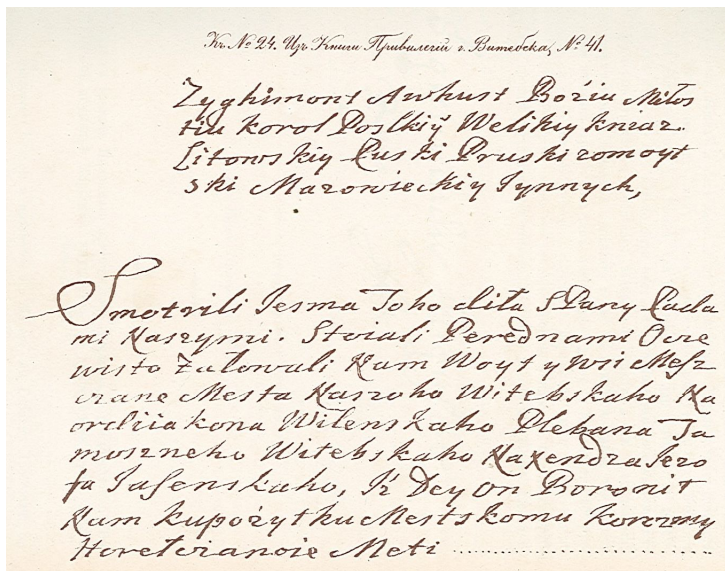 Къ № 24. Изъ Книги Привилегій г. Витебска, № 41.
Zyghimont Awhust Bożiu Miłos
tiu korol Poslkiÿ Welikiy kniaz.
Litowskiy Ruski Pruski zomoyt
ski Mazowieckiy Jynnych,
Smotrili Jesma Toho diła S Pany Rada
mi Naszymi. Stoiali Perednami Ocze
wisto Załowali Nam Woyt y wsi Mesz
czane Mesta Naszoho Witebskaho Na
ordiiakona Wilenskaho Plebana Ta
moszneho Witebskaho Naxendza Jezo
fa Jasenskaho, Iż Dey On Boronit
Nam kupożytku Mestskomu korczmy
Horełczanoie Meti ........................